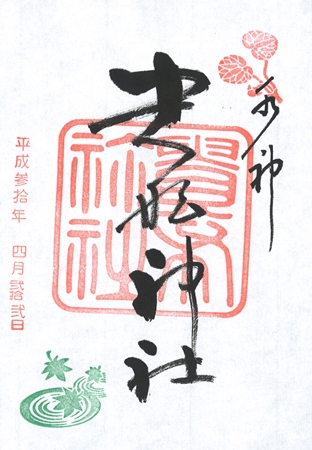 水神
貴船神社
貴布
祢社
平成参拾年 四月弐拾弐日